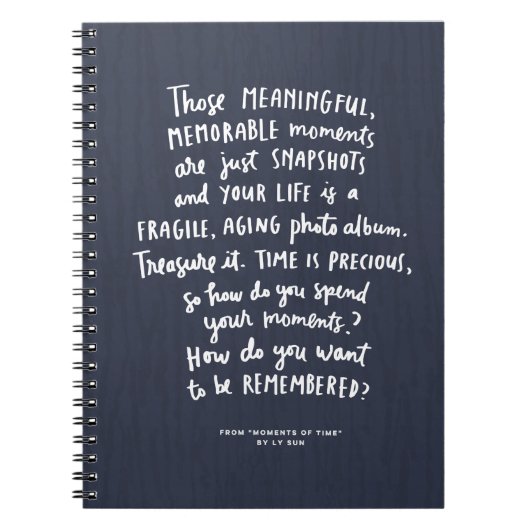 Those MEANINGFUL,
MEMORABLE moments
are just SNAPSHOTS
and YOUR LIFE is a
FRAGILE, AGING photo album.
Treasure it. TIME IS PRECIOUS,
so how do you spend
your moments?
How do you want
to be REMEMBERED?
FROM "MOMENTS OF TIME"
BY LY SUN